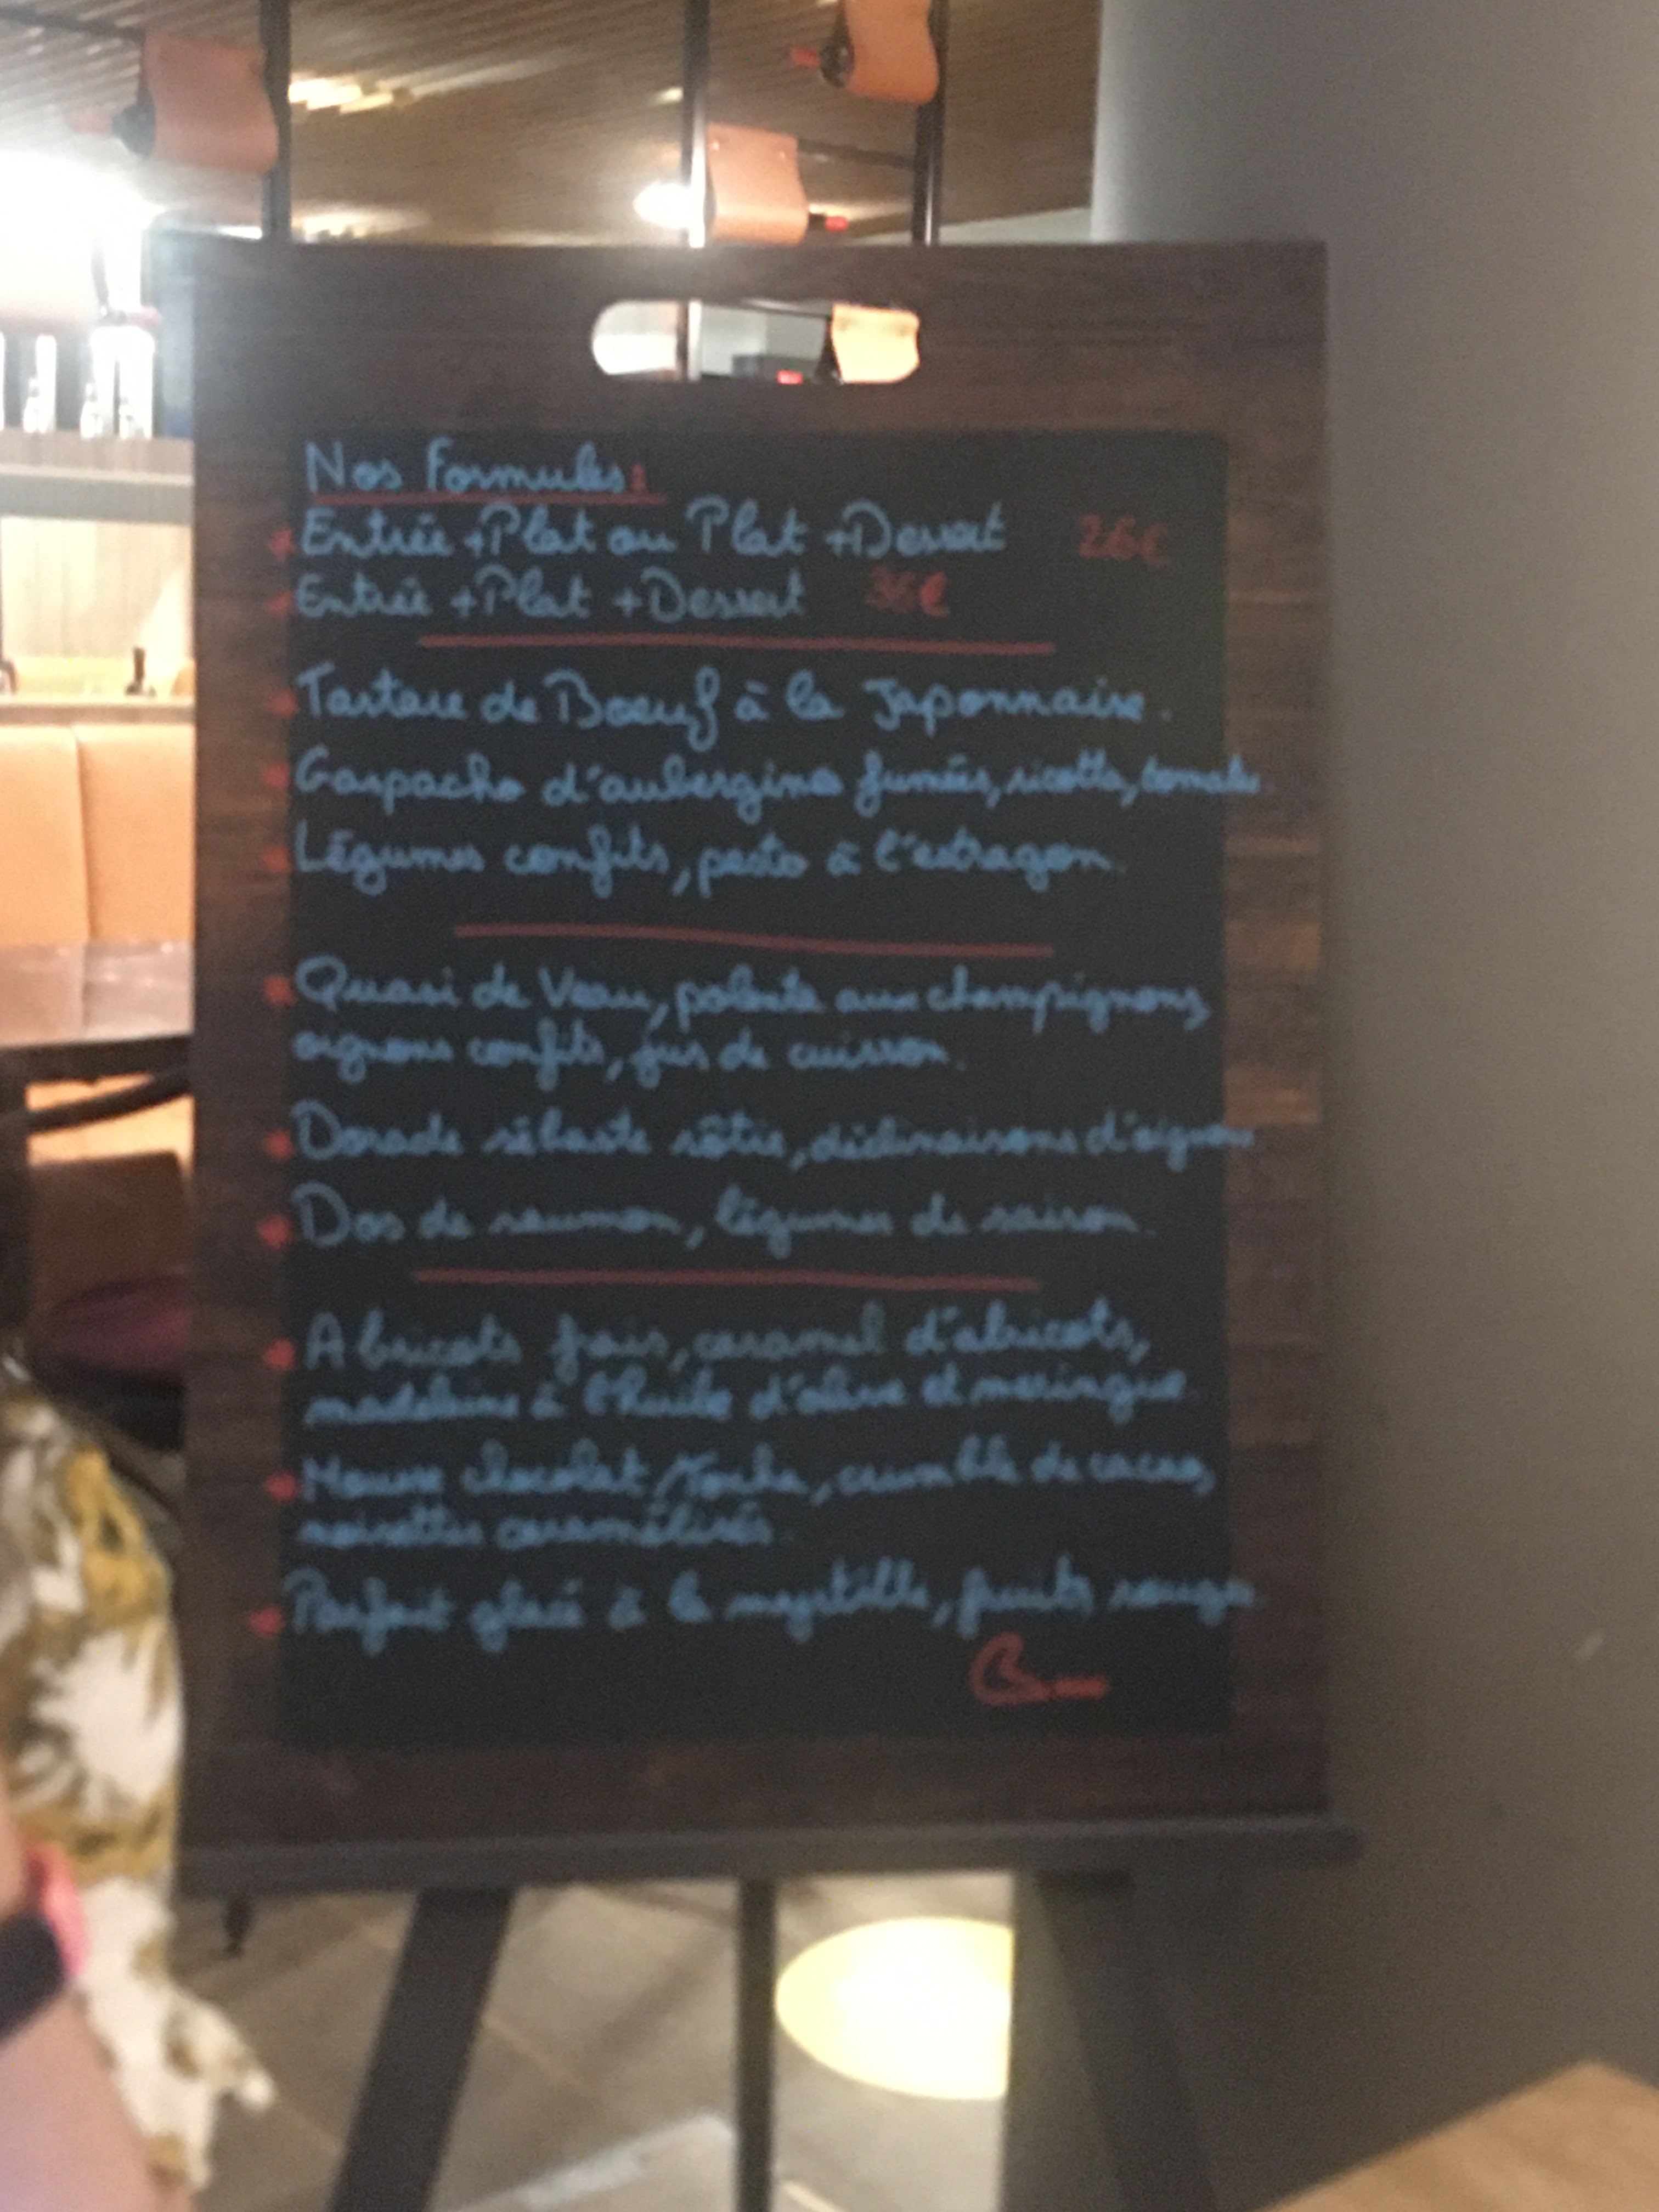 Nos Formules:
Entrée + Plat ou Plat + Dessert 26€
Entrée + Plat + Dessert 36€
Tartare de Boeuf à la Japonnaise.
Gaspacho d'aubergines fumées, ricotta, tomates.
Légumes confits, pesto à l'estragon.
Quasi de Veau, polenta aux champignons,
oignons confits, jus de cuisson.
Dorade sébaste rôtie, déclinaisons d'oignons.
Dos de saumon, légumes de saison.
Abricots frais, caramel d'abricots,
madeleine à l'huile d'olive et meringue.
Mousse chocolat, crumble de cacao,
noisettes caramélisés.
Parfait glacé à la myrtille, fruits rouges.